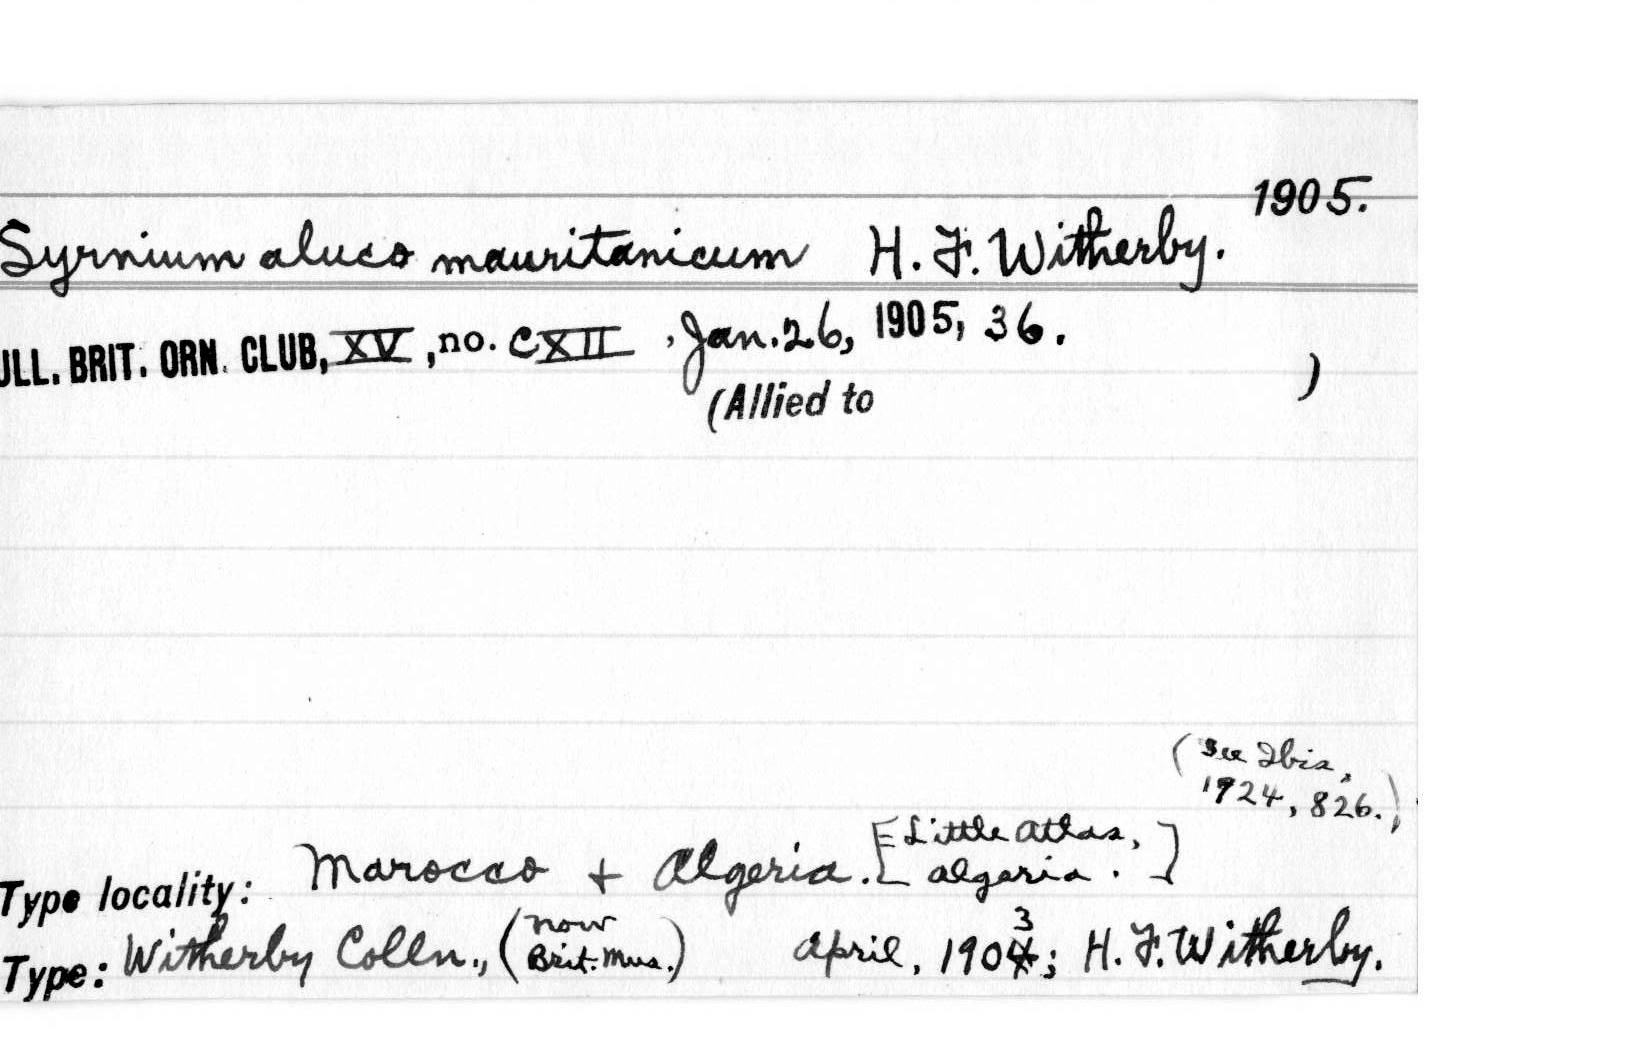 1905.
Syrnium aluco mauritanicum H. F. Witherby.
ULL. BRIT. ORN. CLUB, XV, no. CXII, Jan. 26, 1905, 36.
(Allied to )
(See Ibis,
1924, 826.)
[Little Atlas,
Type locality: Marocco + Algeria. Algeria.]
now 3
Type: Witherby Colln., (Brit. Mus.) April, 1904; H. F. Witherby.